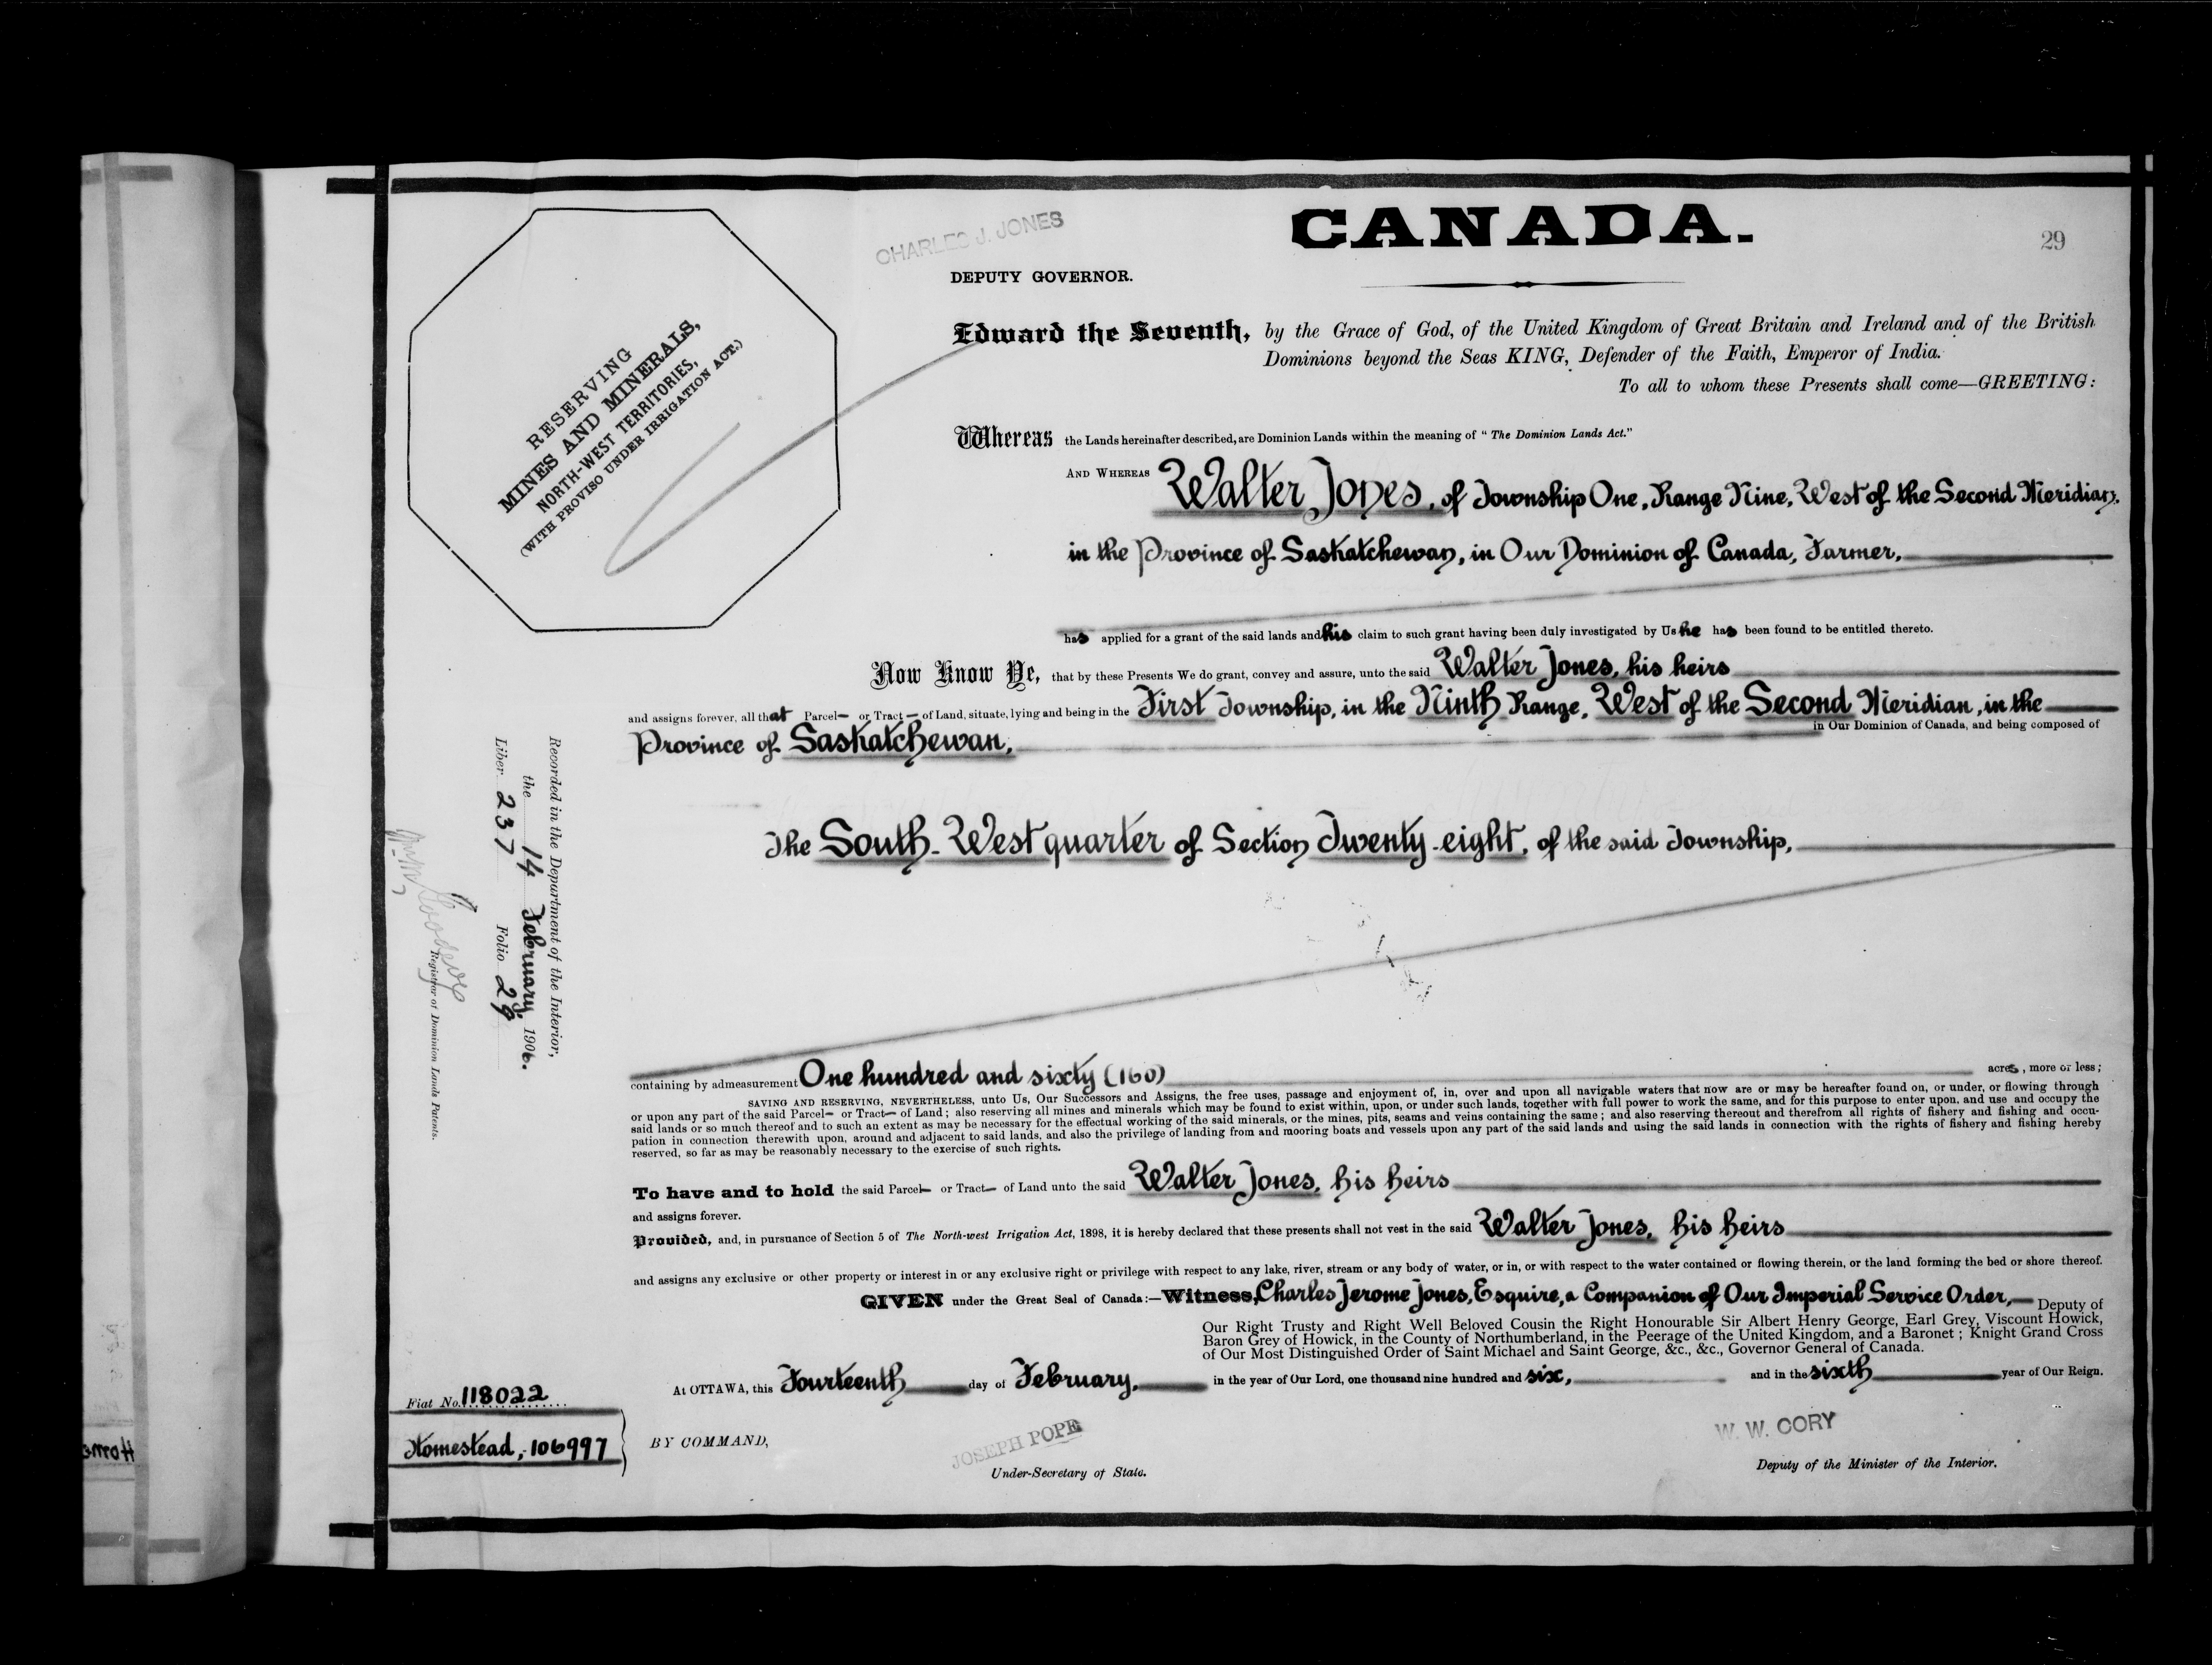 CANADA.
29
CHARLES J. JONES
DEPUTY GOVERNOR.
RESERVING
MINES AND MINERALS,
NORTH-WEST TERRITORIES,
(WITH PROVISO UNDER IRRIGATION ACT.)
Edward the Seventh, by the Grace of God, of the United Kingdom of Great Britain and Ireland and of the British
Dominions beyond the Seas KING, Defender of the Faith, Emperor of India.
To all to whom these Presents shall come—GREETING:
Whereas the Lands hereinafter described, are Dominion Lands within the meaning of "The Dominion Lands Act."
AND WHEREAS Walter Jones, of Township One, Range Nine, West of the Second Meridian,
in the Province of Saskatchewan, in Our Dominion of Canada, Farmer,
has applied for a grant of the said lands and his claim to such grant having been duly investigated by Us he has been found to be entitled thereto.
Now Know Ye, that by these Presents We do grant, convey and assure, unto the said Walter Jones, his heirs
and assigns forever, all that Parcel— or Tract— of Land, situate, lying and being in the First Township, in the Ninth Range, West of the Second Meridian, in the
Province of Saskatchewan, in Our Dominion of Canada, and being composed of
The South-West quarter of Section Twenty-eight, of the said Township,
Recorded in the Department of the Interior,
the 14 February 1906.
Liber 237 Folio 29
Registrar of Dominion Lands Patents.
containing by admeasurement One hundred and sixty (160) acres, more or less;
SAVING AND RESERVING, NEVERTHELESS, unto Us, Our Successors and Assigns, the free uses, passage and enjoyment of, in, over and upon all navigable waters that now are or may be hereafter found on, or under, or flowing through
or upon any part of the said Parcel— or Tract— of Land; also reserving all mines and minerals which may be found to exist within, upon, or under such lands, together with full power to work the same, and for this purpose to enter upon, and use and occupy the
said lands or so much thereof and to such an extent as may be necessary for the effectual working of the said minerals, or the mines, pits, seams and veins containing the same; and also reserving thereout and therefrom all rights of fishery and fishing and occu-
pation in connection therewith upon, around and adjacent to said lands, and also the privilege of landing from and mooring boats and vessels upon any part of the said lands and using the said lands in connection with the rights of fishery and fishing hereby
reserved, so far as may be reasonably necessary to the exercise of such rights.
To have and to hold the said Parcel— or Tract— of Land unto the said Walter Jones, his heirs
and assigns forever.
Provided, and, in pursuance of Section 5 of The North-west Irrigation Act, 1898, it is hereby declared that these presents shall not vest in the said Walter Jones, his heirs
and assigns any exclusive or other property or interest in or any exclusive right or privilege with respect to any lake, river, stream or any body of water, or in, or with respect to the water contained or flowing therein, or the land forming the bed or shore thereof.
GIVEN under the Great Seal of Canada:—Witness, Charles Jerome Jones, Esquire, a Companion of Our Imperial Service Order,— Deputy of
Our Right Trusty and Right Well Beloved Cousin the Right Honourable Sir Albert Henry George, Earl Grey, Viscount Howick,
Baron Grey of Howick, in the County of Northumberland, in the Peerage of the United Kingdom, and a Baronet; Knight Grand Cross
of Our Most Distinguished Order of Saint Michael and Saint George, &c., &c., Governor General of Canada.
At OTTAWA, this Fourteenth day of February, in the year of Our Lord, one thousand nine hundred and six, and in the sixth year of Our Reign.
Fiat No. 118022
Homestead, 106997
BY COMMAND,
JOSEPH POPE
Under-Secretary of State.
W. W. CORY
Deputy of the Minister of the Interior.